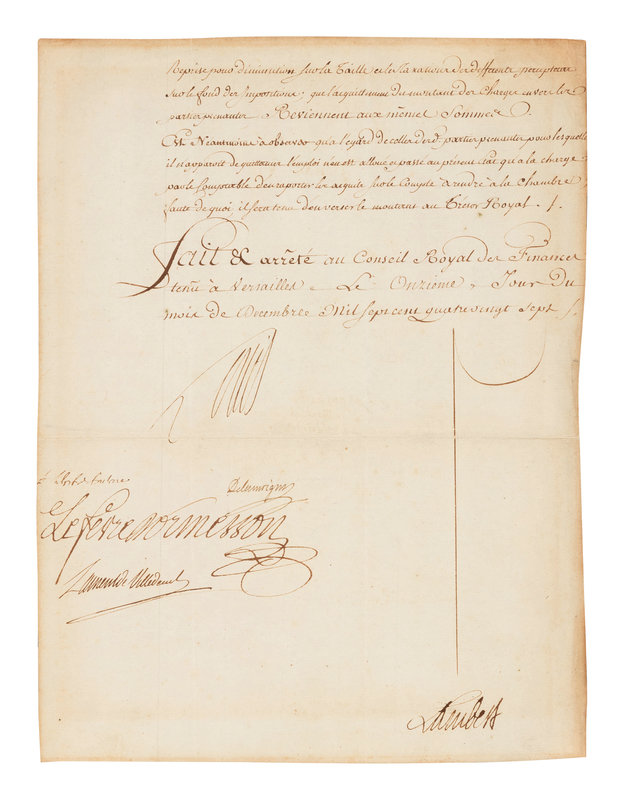 Reprise pour diminution sur la Taille et les taxations des differents percepteurs
sur le fond des Impositions; que l'acquittement du montant des Charges envers les
parties prenantes Reviennent aux mêmes Sommes.
Est Néantmoins à observer qu'a l'egard de celles desd. parties prenantes pour lesquelles
il n'aparoit de quittances l'emploi n'en est alloué et passé au présent état qu'a la charge
par le Comptable d'en raporter les acquits sur le Compte à rendre à la Chambre
faute de quoi il sera tenu d'en verser le montant au Trésor Royal ./.
Fait & arrêté au Conseil Royal des Finances
tenu à Versailles, Le Onzieme, Jour du
mois de Décembre Mil Sept cent quatrevingt Sept ./.
Louis
Delamoignon
Lefevre Dormesson
Laurent de Villedeuil
Lambert